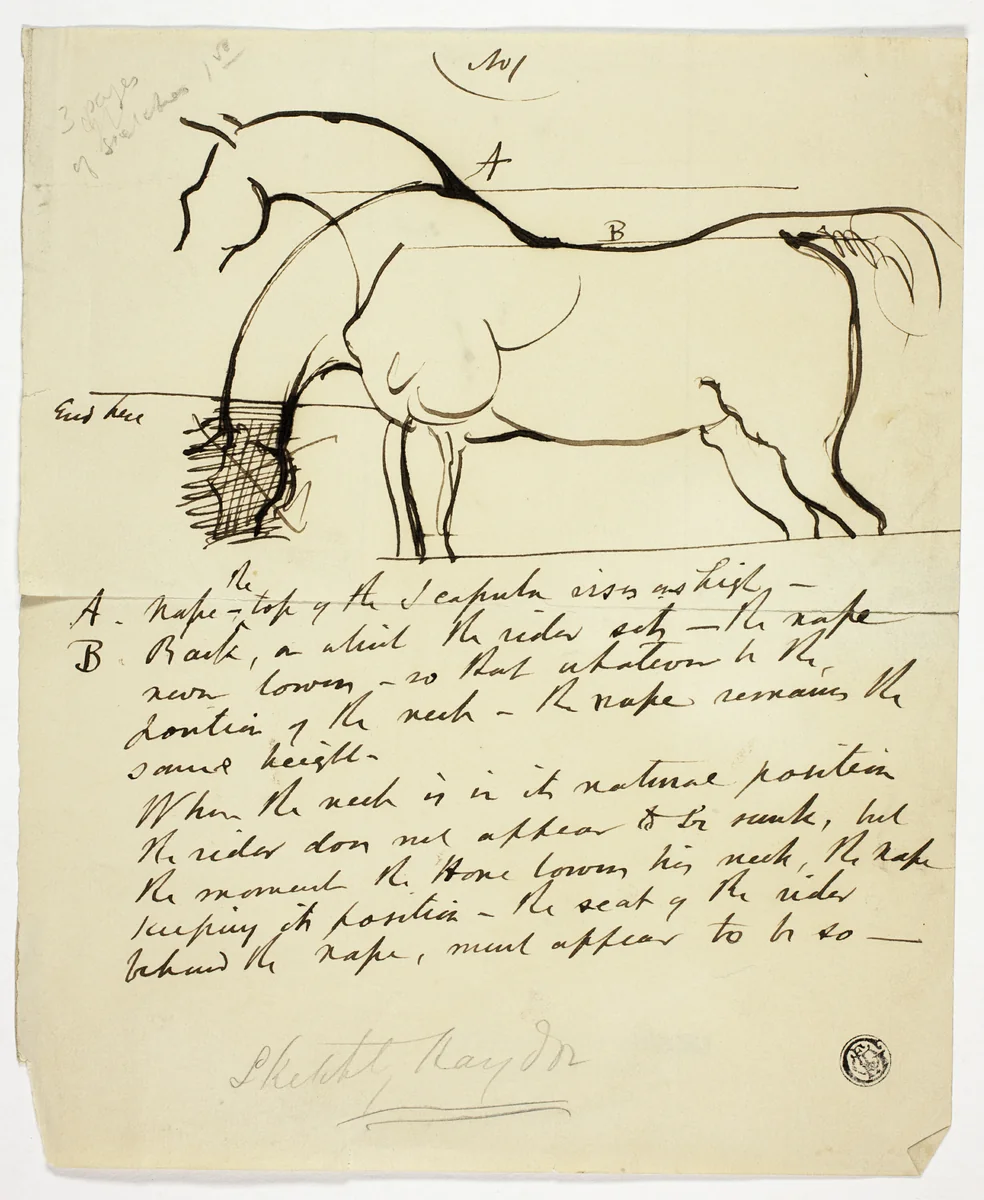 No 1
3 pages
of sketches 1
A
B
End here
the
A. Nape - top of the Scapula rises as high -
B. Back, on which the rider sets - the nape
never lowers - so that whatever be the
position of the neck - the nape remains the
same height -
When the neck is in its natural position
the rider does not appear to be sunk, but
the moment the Horse lowers his neck, the nape
keeping its position - the seat of the rider
behind the nape, must appear to be so -
Sketch by Haydon